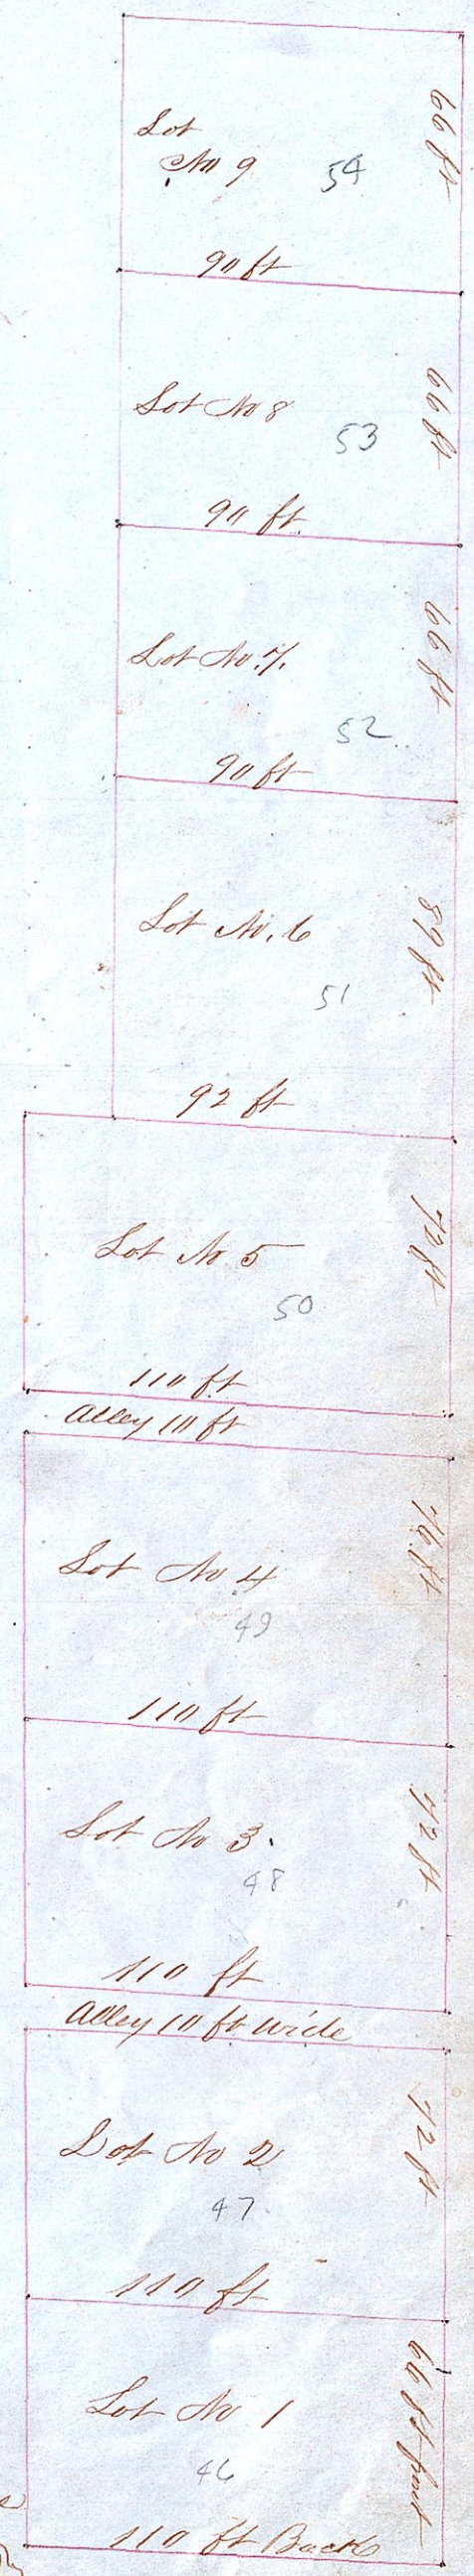 Lot
No 9
54
66 ft
90 ft
Lot No 8
53
66 ft
90 ft.
Lot No. 7.
52
66 ft
90 ft
Lot No. 6
51
89 ft
92 ft
Lot No 5
50
72 ft
110 ft
Alley 10 ft
Lot No 4
49
76 ft
110 ft
Lot No 3.
48
72 ft
110 ft
Alley 10 ft wide
Lot No 2
47
72 ft
110 ft
Lot No 1
46
66 ft front
110 ft Back